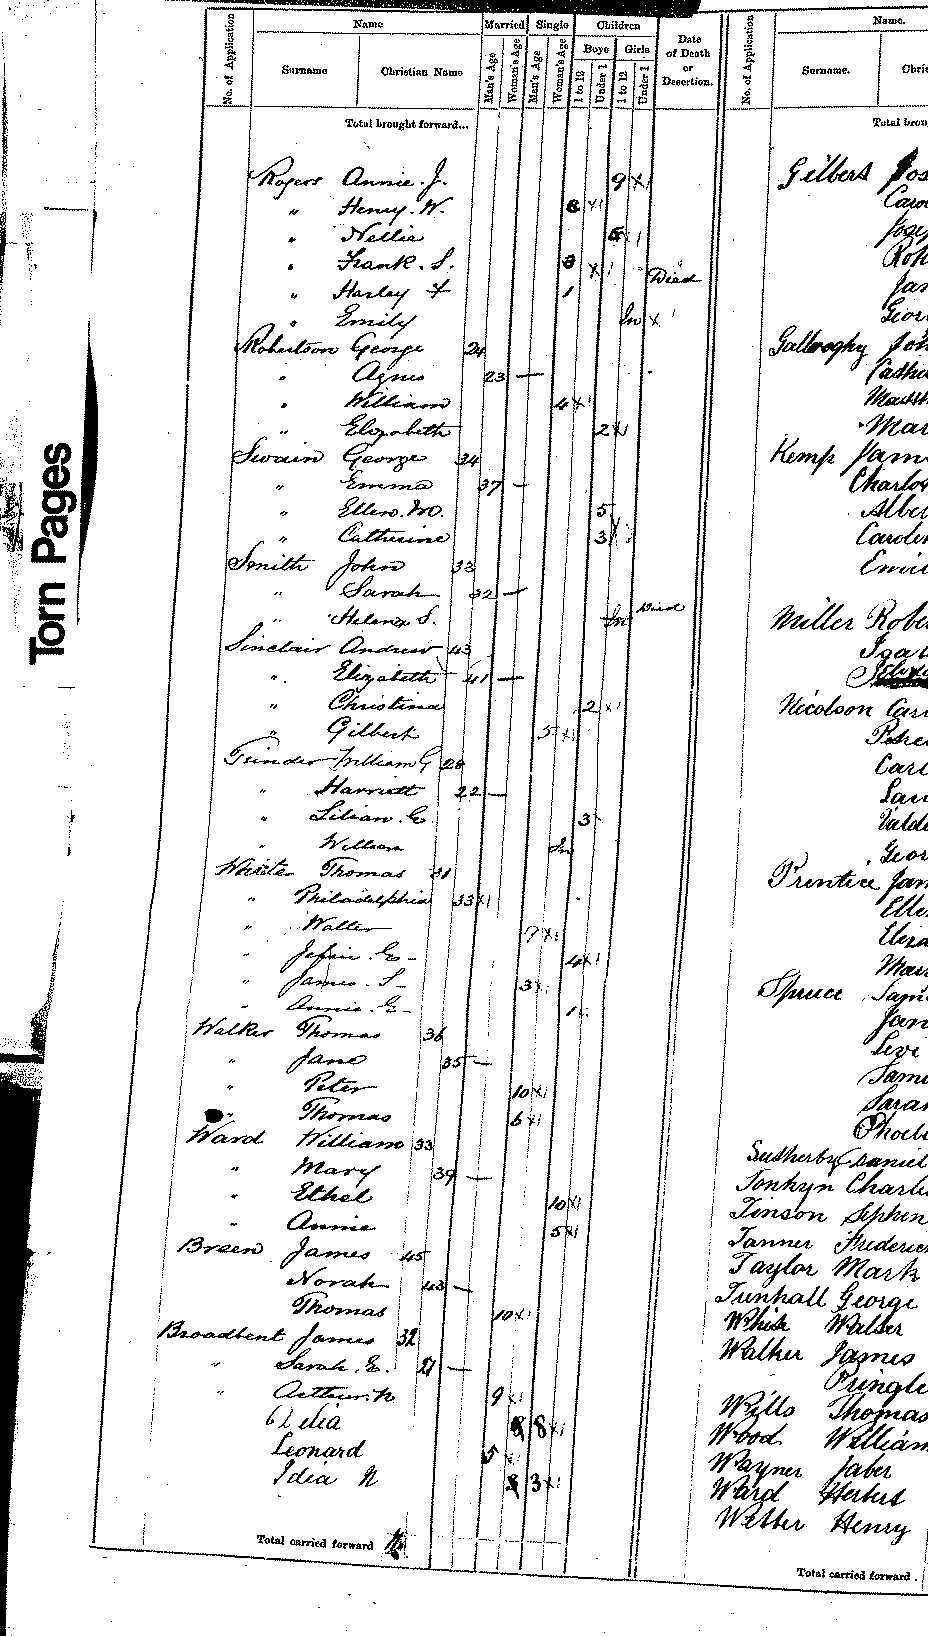 Torn Pages
No. of Application Name Married Single Children Date of Death or Desertion.
Surname Christian Name Man's Age Woman's Age Man's Age Woman's Age Boys Girls
1 to 12 Under 1 1 to 12 Under 1
Total brought forward...
Rogers Annie. J. 9 x
" Henry. W. 8 x
" Nellie x
" Frank. S. 3 x
" Harley 1 Died
" Emily In x
Robertson George 24
" Agnes 23 —
" William 4 x
" Elizabeth 2 x
Swain George 34
" Emma 37 —
" Ellen. M. 5
" Catherine 3
Smith John 33
" Sarah 32 —
" S. In Died
Sinclair Andrew 43
" Elizabeth 41 —
" Christina 2 x
" Gilbert 5 x
William G 28
" Harriett 22 —
" Lilian. E 3
" William In
Thomas 31
" Philadelphia 33 x
" Walter 7 x
" E— 4 x
" James. S— 3 x
" Annie. E— 1
Walker Thomas 36
" Jane 35 —
" Peter 10 x
" Thomas 6 x
Ward William 33
" Mary 39 —
" Ethel 10 x
" Annie 5 x
Breen James 45
Norah 43 —
Thomas 10 x
Broadbent James 32
" Sarah. E. 21 —
" Arthur. N 9 x
8 x
Leonard 5 x
Idia N 3 x
Total carried forward
No. of Application Name.
Surname. Chri
Total brou
Gilbert Jos
Caro
Jose
Rob
Jan
Geor
Joh
Cathe
Mar
Kemp Jam
Charlo
Alber
Carolin
Emi
Miller Robe
Isa
Nicolson Car
Peter
Carl
Lau
Valde
Geor
Prentice Jam
Elle
Eliza
Mar
Spruce Sam
Jan
Levi
Samu
Sara
Phoeb
Sutherby Daniel
Tonkyn Charle
Tinson Stephen
Tanner Frederic
Taylor Mark
Tunhall George
White Walter
Walker James
Pringle
Wills Thomas
Wood William
Wayner Jaber
Ward Herbert
Webber Henry
Total carried forward .